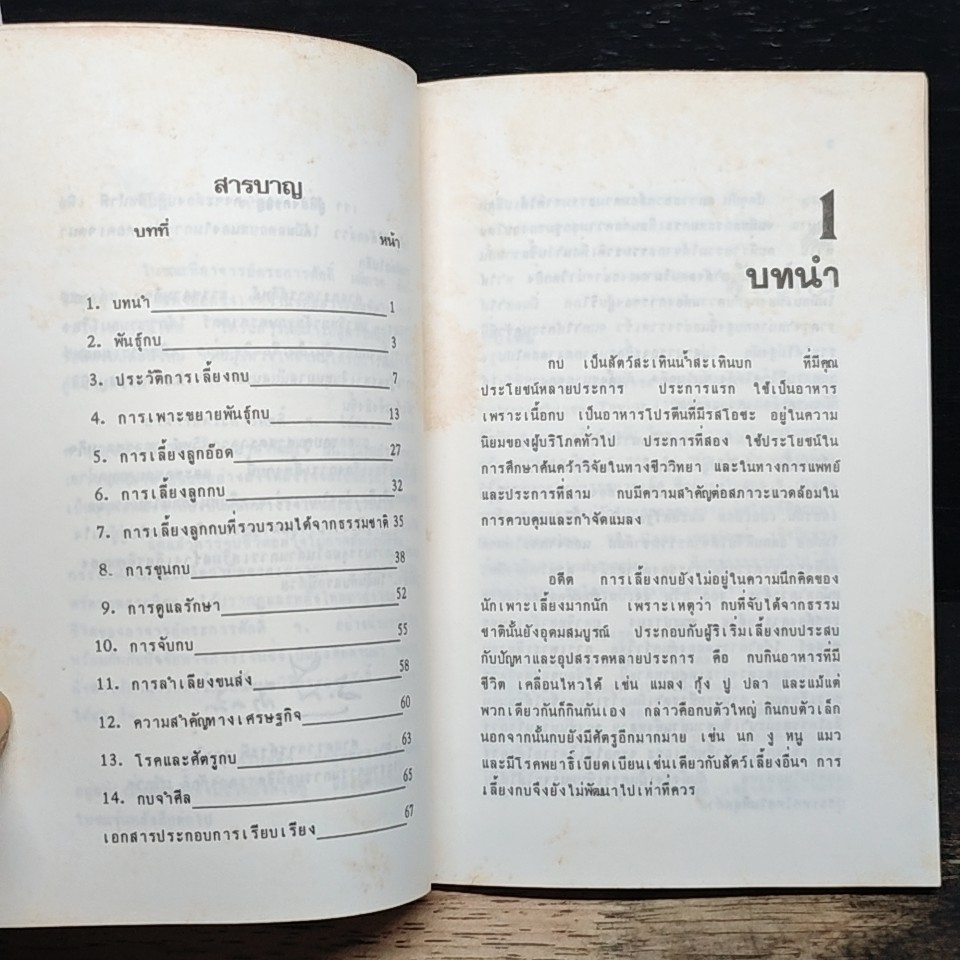 สารบาญ
บทที่ หน้า
1. บทนำ 1
2. พันธุ์กบ 3
3. ประวัติการเลี้ยงกบ 7
4. การเพาะขยายพันธุ์กบ 13
5. การเลี้ยงลูกอ๊อด 27
6. การเลี้ยงลูกกบ 32
7. การเลี้ยงลูกกบที่รวบรวมได้จากธรรมชาติ 35
8. การขุนกบ 38
9. การดูแลรักษา 52
10. การจับกบ 55
11. การลำเลียงขนส่ง 58
12. ความสำคัญทางเศรษฐกิจ 60
13. โรคและศัตรูกบ 63
14. กบจำศีล 65
เอกสารประกอบการเรียบเรียง 67
1
บทนำ
กบ เป็นสัตว์สะเทินน้ำสะเทินบก ที่มีคุณ
ประโยชน์หลายประการ ประการแรก ใช้เป็นอาหาร
เพราะเนื้อกบ เป็นอาหารโปรตีนที่มีรสโอชะ อยู่ในความ
นิยมของผู้บริโภคทั่วไป ประการที่สอง ใช้ประโยชน์ใน
การศึกษาค้นคว้าวิจัยในทางชีววิทยา และในทางการแพทย์
และประการที่สาม กบมีความสำคัญต่อสภาวะแวดล้อมใน
การควบคุมและกำจัดแมลง
อดีต การเลี้ยงกบยังไม่อยู่ในความนึกคิดของ
นักเพาะเลี้ยงมากนัก เพราะเหตุว่า กบที่จับได้จากธรรม
ชาตินั้นยังอุดมสมบูรณ์ ประกอบกับผู้ริเริ่มเลี้ยงกบประสบ
กับปัญหาและอุปสรรคหลายประการ คือ กบกินอาหารที่มี
ชีวิต เคลื่อนไหวได้ เช่น แมลง กุ้ง ปู ปลา และแม้แต่
พวกเดียวกันก็กินกันเอง กล่าวคือกบตัวใหญ่ กินกบตัวเล็ก
นอกจากนั้นกบยังมีศัตรูอีกมากมาย เช่น นก งู หนู แมว
และมีโรคพยาธิ์เบียดเบียนเช่นเดียวกับสัตว์เลี้ยงอื่นๆ การ
เลี้ยงกบจึงยังไม่พัฒนาไปเท่าที่ควร